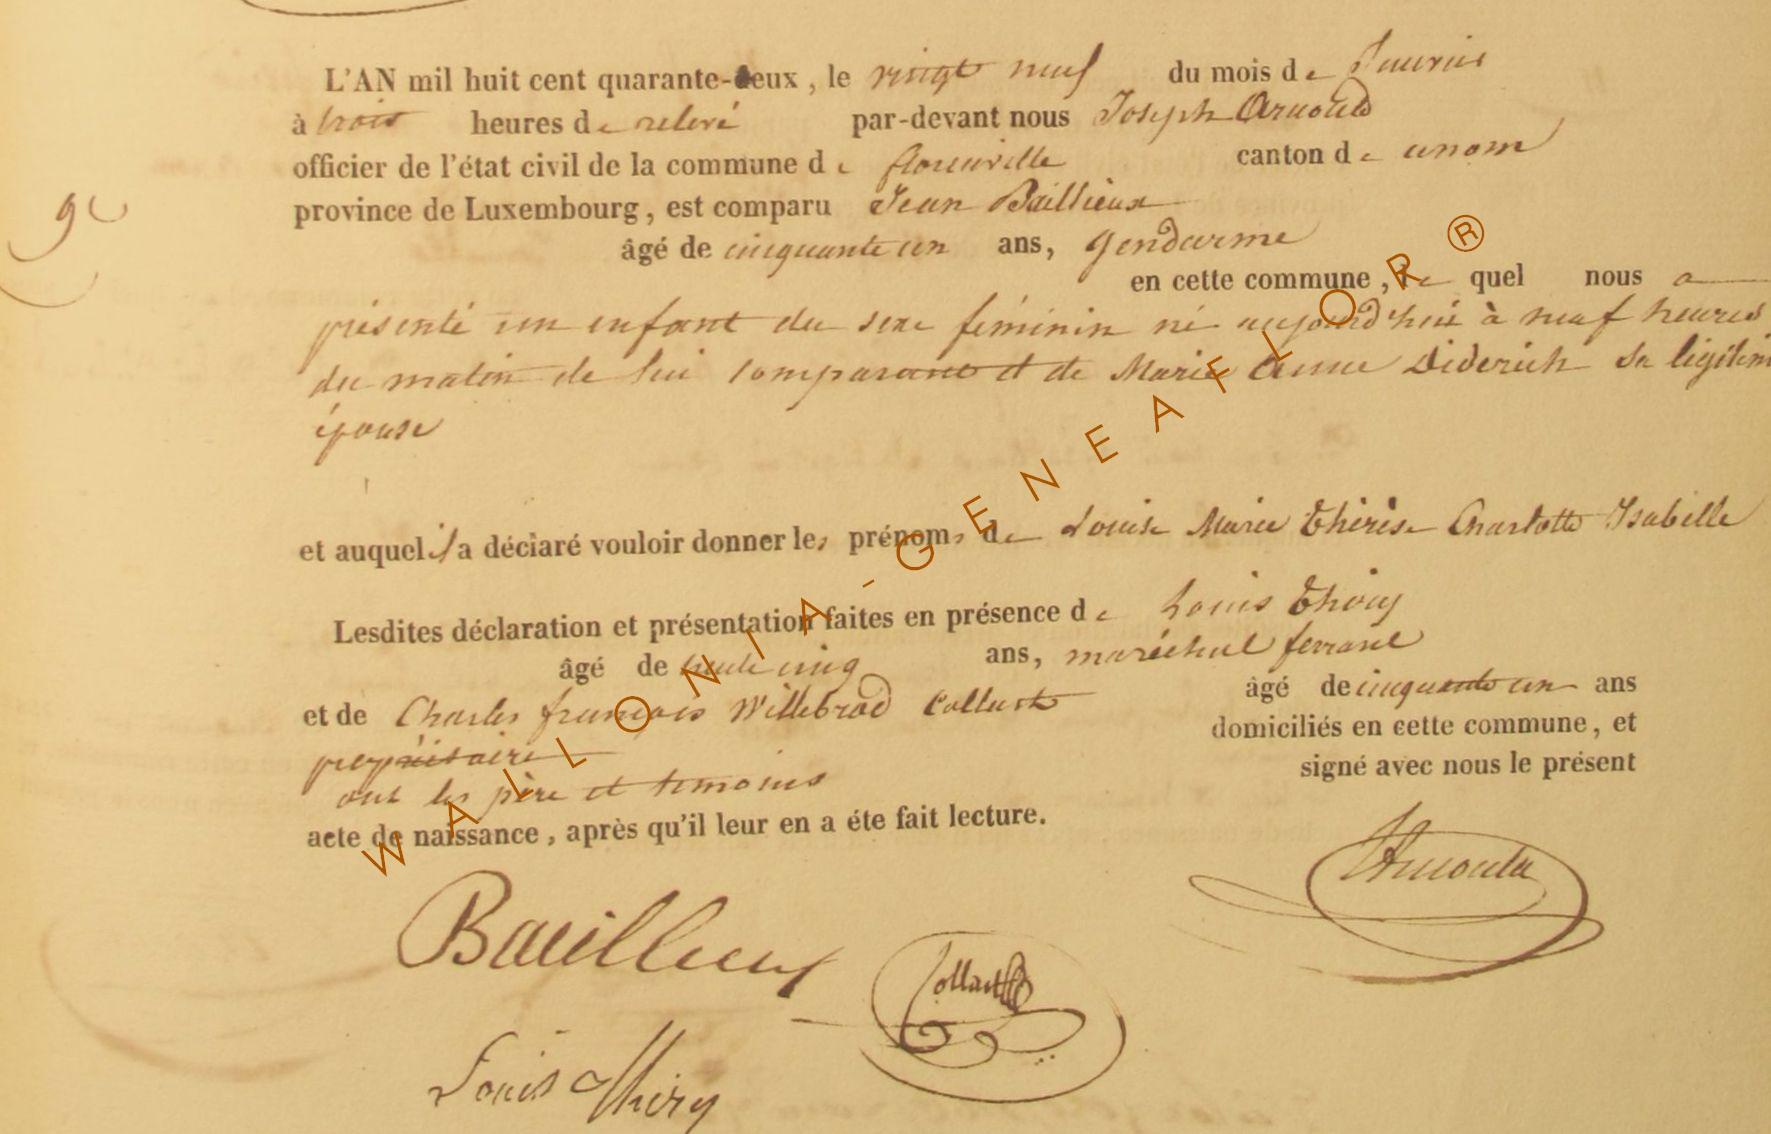 L'AN mil huit cent quarante-deux, le vingt neuf du mois de Janvier
à trois heures de relevé par-devant nous Joseph Arnould
officier de l'état civil de la commune de florenville canton de
province de Luxembourg, est comparu Jean Baillieux
âgé de cinquante un ans, Gendarme
en cette commune, le quel nous a
présenté un enfant du sexe féminin né aujourd'hui à neuf heures
du matin de lui comparant et de Marie Anne Diderich sa légitime
épouse
et auquel il a déclaré vouloir donner les prénoms de Louise Marie Thérèse Charlotte Isabelle
Lesdites déclaration et présentation faites en présence de Louis Thiry
âgé de trente cinq ans, maréchal ferrant
et de Charles françois Willebrod Collart âgé de cinquante un ans
propriétaire domiciliés en cette commune, et
ont les père et témoins signé avec nous le présent
acte de naissance, après qu'il leur en a éte fait lecture.
Arnould
Baillieux
Collart
Louis Thiry
WALLONIA-GENEAFLOR®